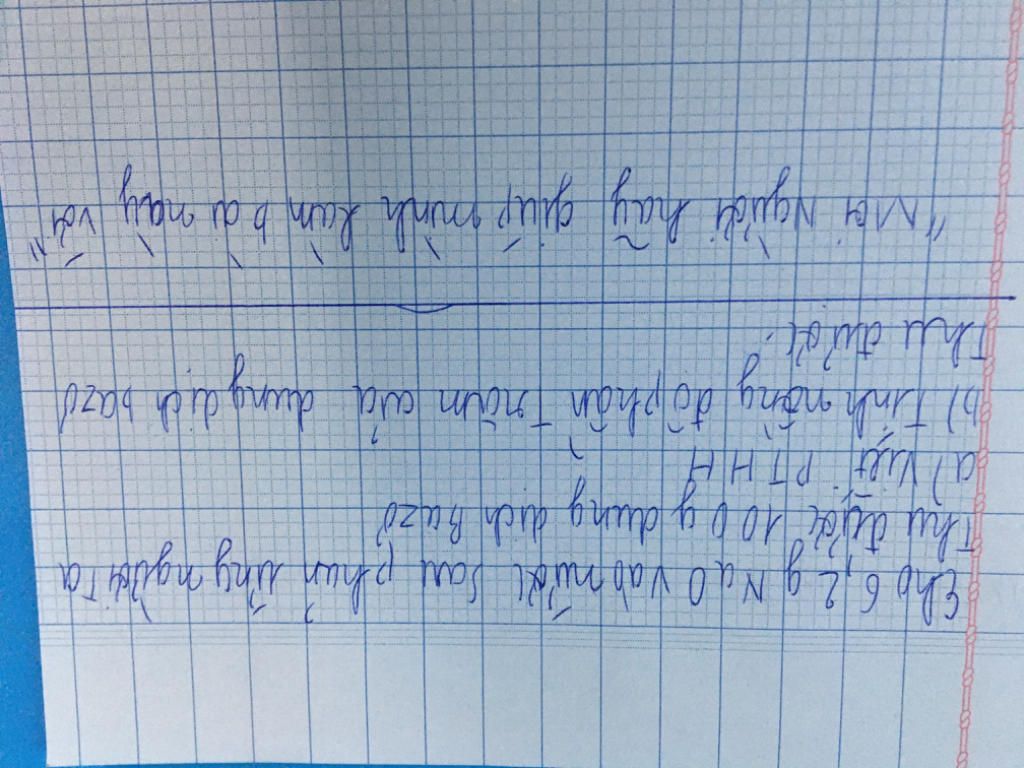 Cho 6,2g NaO vào nước sau phản ứng người ta
Thu được 100g dung dịch Bazơ
a) Viết PTHH
b) Tính nồng độ phần Trăm của dung dịch bazơ
Thu được.
"Mọi người hãy giúp mình làm bài này với"